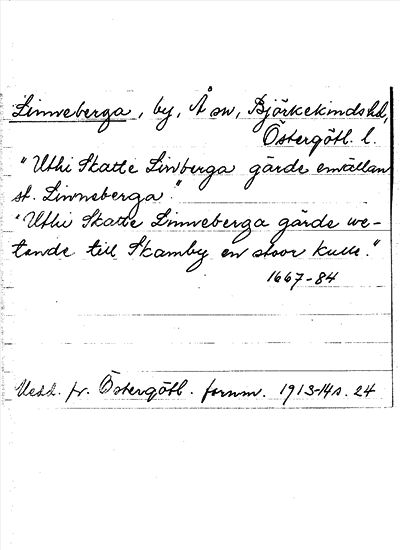 Linneberga, by, Å sn, Björkekinds hd,
Östergötl. l.
"Uthi Skatte Linberga gärde emällan
st. Linneberga."
"Uthi Skatte Linneberga gärde we-
tande till Skamby en stoor kulle."
1667-84
Medd. fr. Östergötl. fornm. 1913-14 s. 24